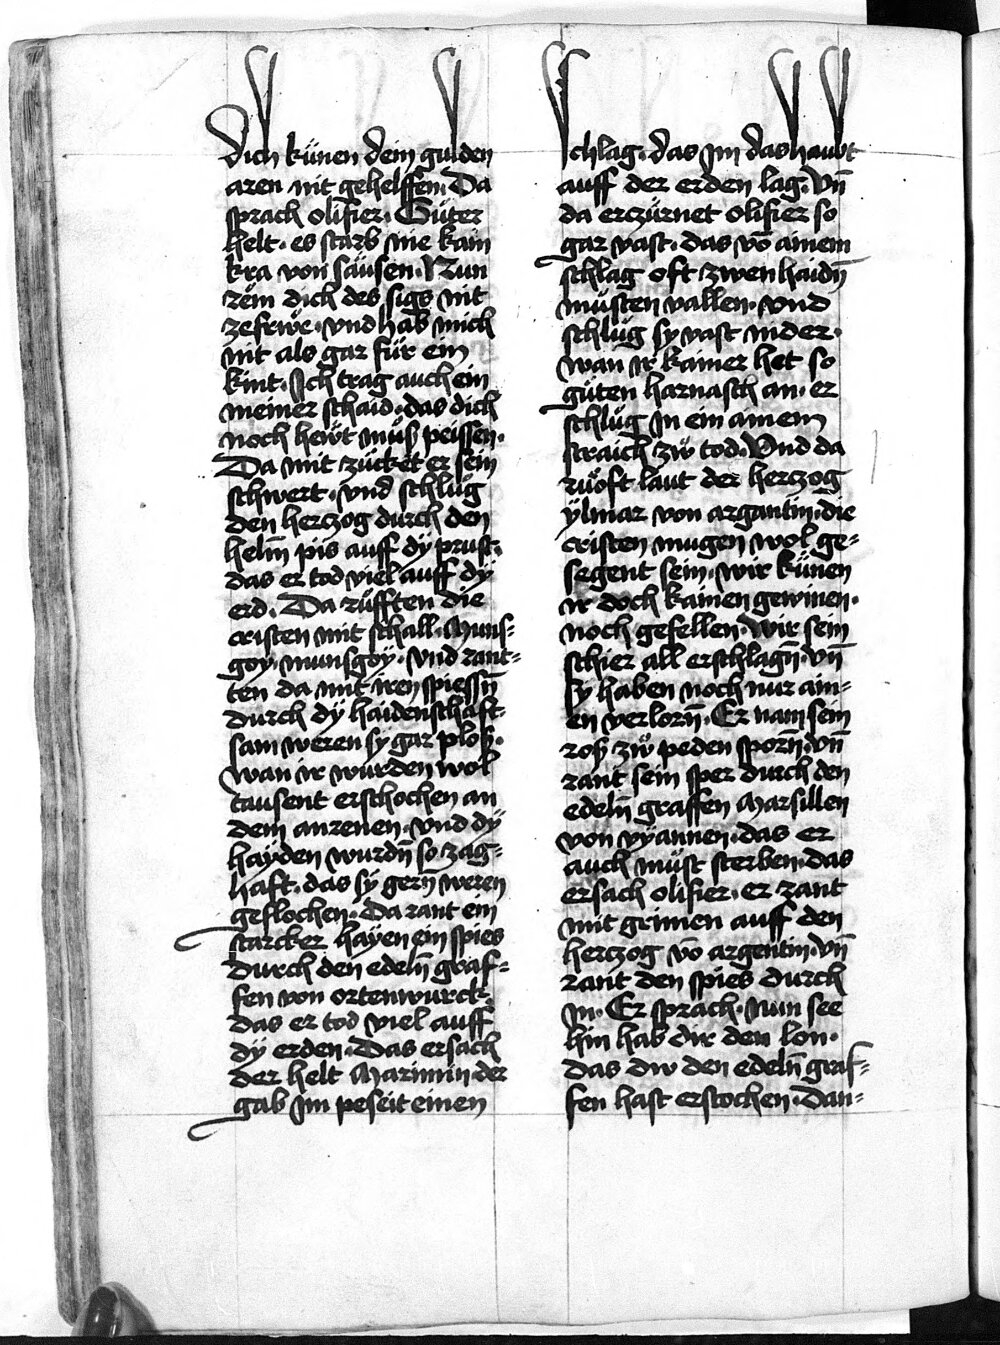 Dich künen dein gulden
aren nit gehelffen. Da
sprach olifier. Güter
helt. es starb nie kain
kra von säusen. Nun
zëm dich des sigs nit
zefrwe. vnd hab mich
nit als gar für ein
kint. Ich trag auch ein
meiner schaid. das dich
noch hewt müß peissen.
Da mit zücket er sein
schwert. vnd schlüg
den herczog durch den
helm pis auff dÿ prust.
das er tod viel auff dÿ
erd. Da rüfften die
cristen mit schall. Muns=
goy. munsgoÿ. vnd rant=
ten da mit iren spiessn̄
durch dÿ haidenschaft.
sam weren sy gar ploß.
wan ir wurden wol
tausent erstochen an
dem anrenen. vnd dÿ
haÿden wurdn̄ so zag=
haft. das sÿ gern weren
geflochen. Da rant ein
starcker haÿen ein spies
durch den edeln̄ graf=
fen von ortenwurck.
das er tod viel auff
dÿ erden. Das ersach
der helt Marimin. der
gab Im peseit einen
schlag. das Im das haubt
auff der erden lag. Vn̄
da erczürnet olifier so
gar vast. das vō ainem
schlag oft zwen haidn̄
müsten vallen. vnd
schlüg sy vast nider.
wan ir kainer het so
güten harnasch an. er
schlüg In ein ainem
straich zw̎ tod. Vnd da
rüoft laut der herczog
ÿlmar von argantin. die
cristen mugen wol ge=
segent sein. wir künen
ir doch kainen gewinen.
noch gefellen. Wir sein
schier all erschlagn̄. Vn̄
sÿ haben noch nur ain=
en verlorn̄. Er nam sein
roß zw̎ peden sporn̄. vn̄
rant sein sper durch den
edeln̄ graffen Marsillen
von vÿannen. das er
auch müst sterben. das
ersach olifier. er rant
mit grimen auff den
herczog vō argentin. vn̄
rant den spies durch
in. Er sprach. Nun see
hin hab dir den lon.
das dw den edeln̄ graf=
fen hast erstochen. Dan=